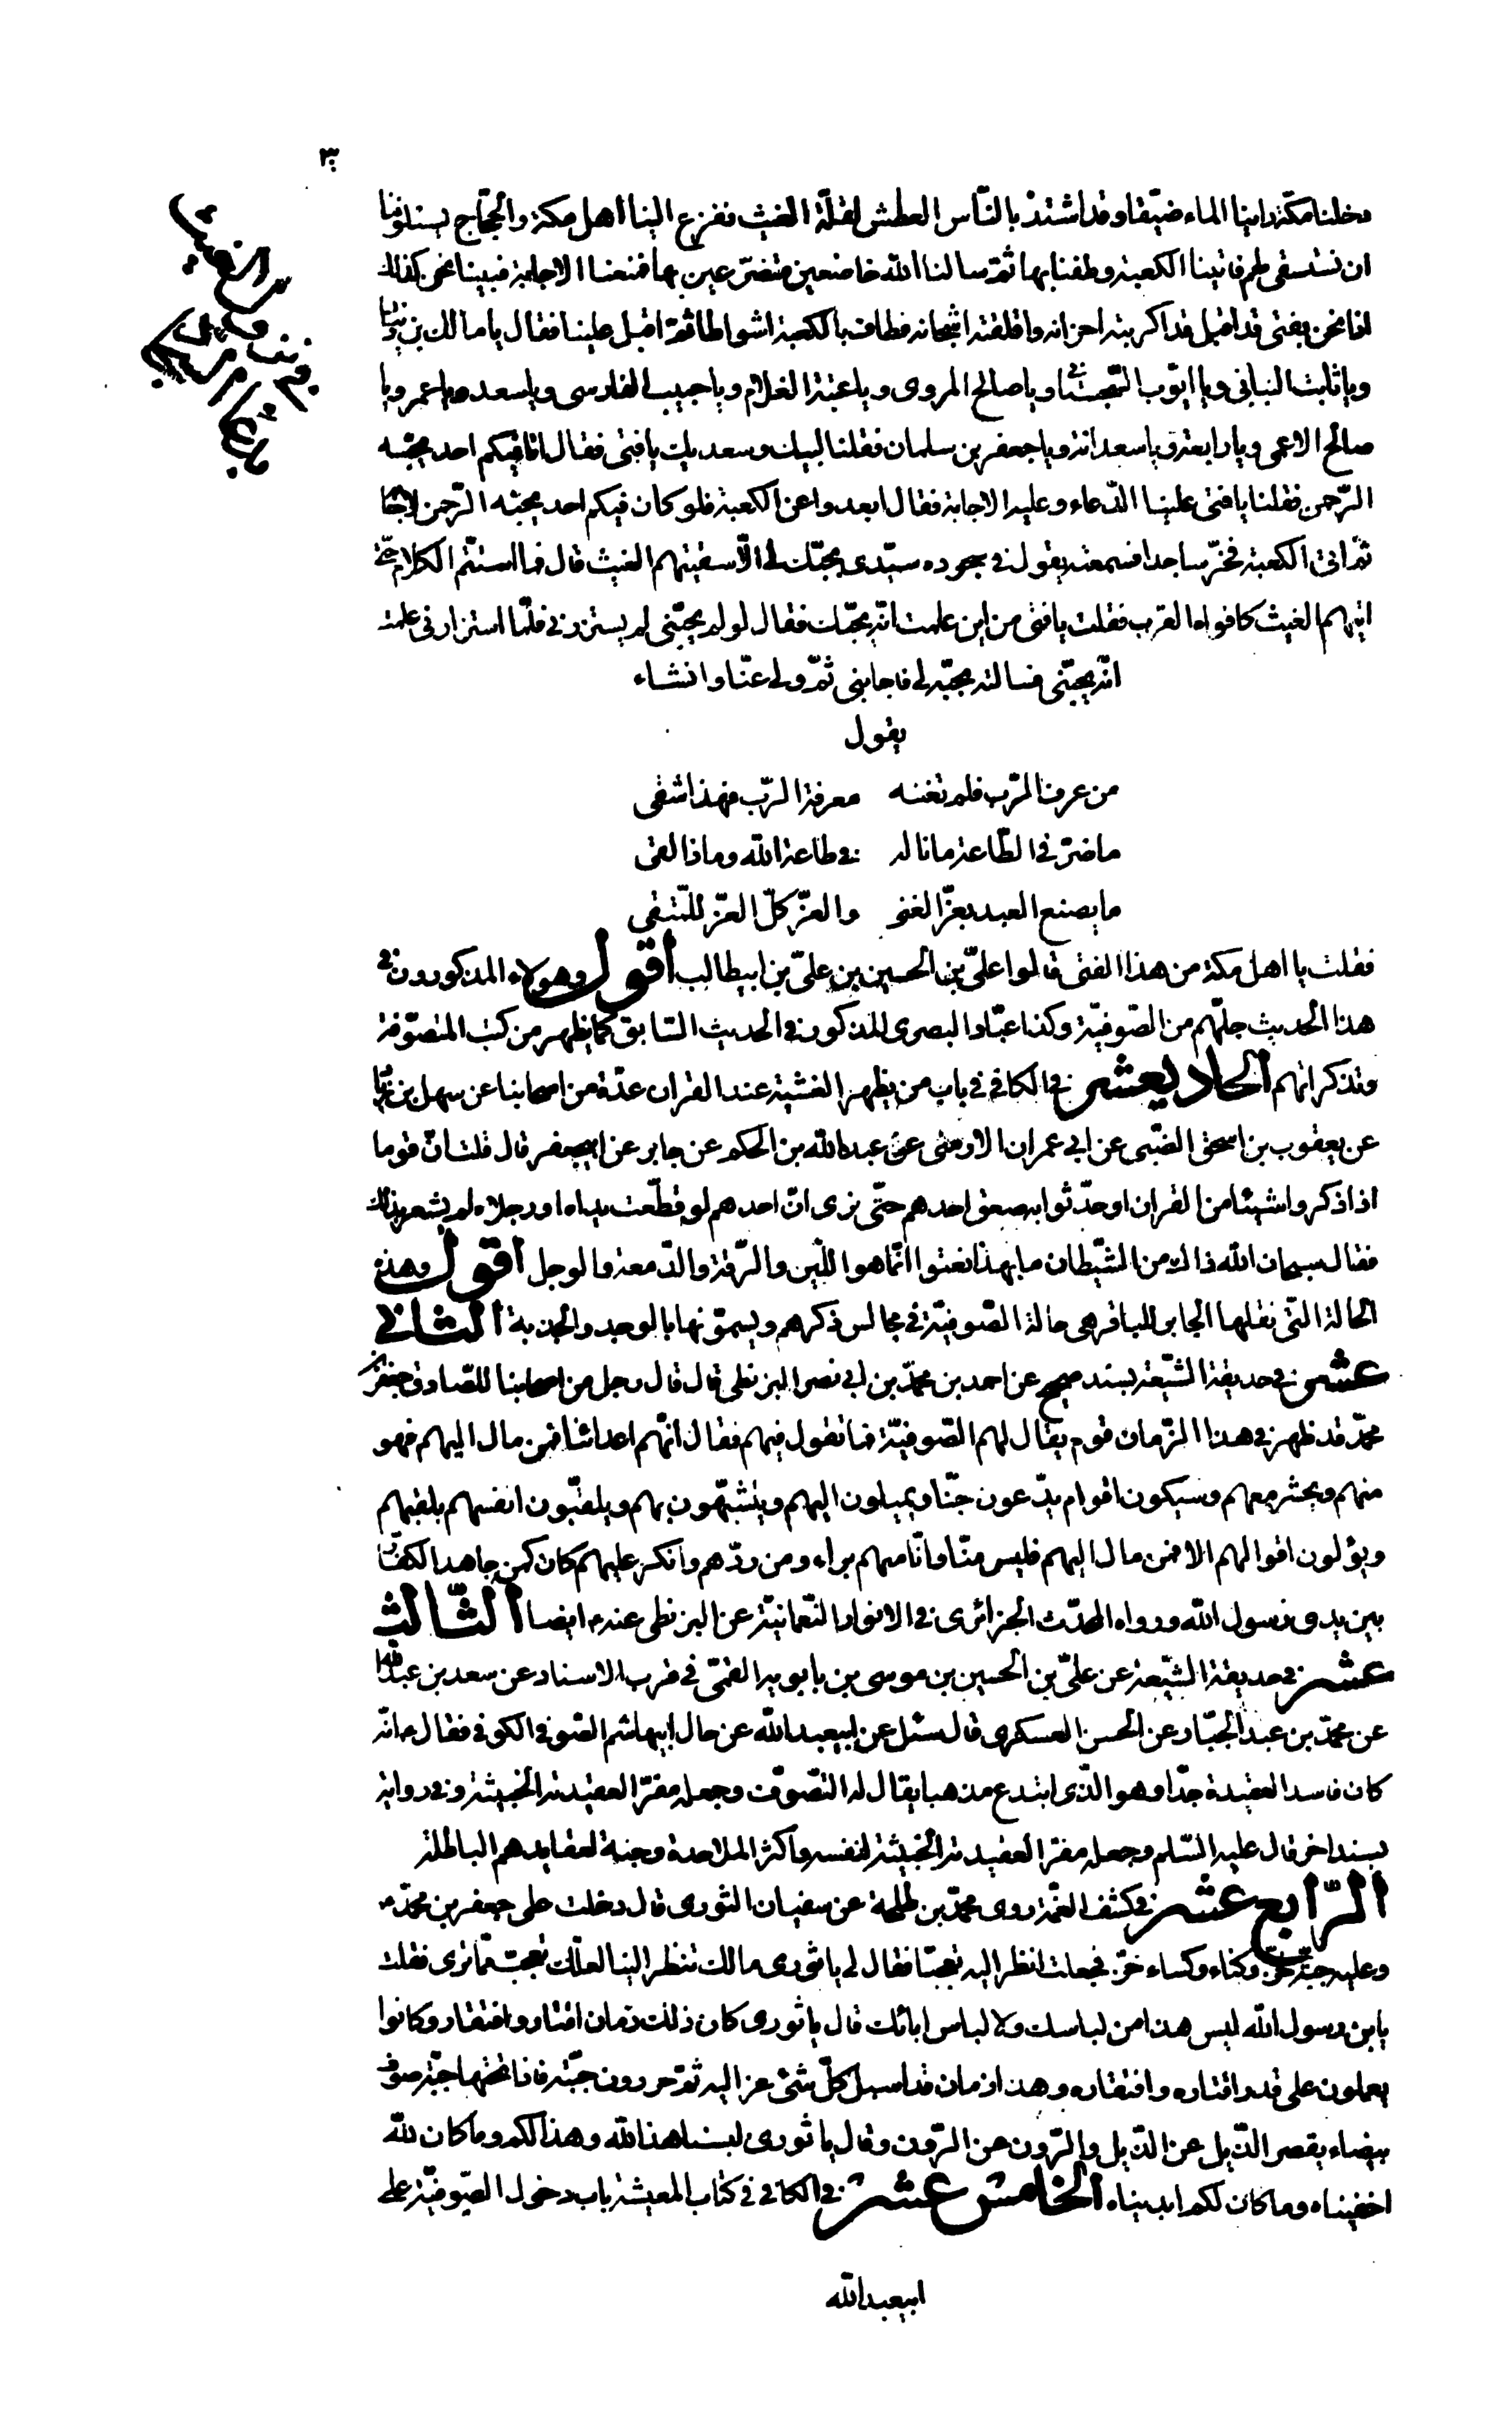 ٣
دخلنا مكة راينا الماء ضيقا وقد اشتد بالناس العطش لقلة الغيث ففزع الينا اهل مكة والحجاج يسئلوننا
ان نستسقى لهم فاتينا الكعبة وطفنا بها ثم سالنا الله خاضعين متضرعين بها فمنعنا الاجابة فبينا نحن كذلك
اذا نحن بفتى قد اقبل قد اكربته احزانه واقلقته اشجانه فطاف بالكعبة اشواطا ثم اقبل علينا فقال يا مالك بن دينار
ويا ثابت البنانى ويا ايوب السجستانى ويا صالح المروى ويا عتبة الغلام ويا حبيب الفارسى ويا سعد ويا عمر ويا
صالح الاعمى ويا رابعة ويا سعدانة ويا جعفر بن سلمان فقلنا لبيك وسعديك يا فتى فقال اما فيكم احد يحبه
الرّحمن فقلنا يا فتى علينا الدّعاء وعليه الاجابة فقال ابعدوا عن الكعبة فلو كان فيكم احد يحبّه الرّحمن لاجابه
ثم اتى الكعبة فخرّ ساجدا فسمعته يقول فى سجوده سيّدى بحبّك لى الّا سقيتهم الغيث قال فما استتم الكلام حتى
اتيهم الغيث كافواه القرب فقلت يا فتى من اين علمت انّه يحبّك فقال لو لم يحبّنى لم يستزرنى فلمّا استزارنى علمت
انّه يحبّنى فسالته بحبّه لى فاجابنى ثمّ ولى عنّا وانشاء
يقول
من عرف الرّب فلم تغنه معرفة الرّب فهذا شقى
ما ضرّ فى الطّاعة ما ناله فى طاعة الله وماذا لقى
ما يصنع العبد بعزّ الغنى والعزّ كلّ العزّ للمتّقى
فقلت يا اهل مكة من هذا الفتى قالوا علىّ بن الحسين بن علىّ بن ابيطالب اقول وهولاء المذكورون فى
هذا الحديث جلّهم من الصّوفيّة وكذا عبّاد البصرى المذكور فى الحديث السّابق كما يظهر من كتب المتصوّفة
وتذكراتهم الحاديعشر فى الكافى فى باب من يظهر الغشية عند القران عدّة من اصحابنا عن سهل بن زياد
عن يعقوب بن اسحق الضّبى عن ابى عمران الارمنى عن عبدالله بن الحكم عن جابر عن ابيجعفر قال قلت انّ قوما
اذا ذكروا شيئا من القران او حدّثوا به صعق احدهم حتّى نرى انّ احدهم لو قطّعت يداه او رجلاه لم يشعر بذلك
فقال سبحان الله ذاك من الشّيطان ما بهذا نعتوا انّما هو اللّين والرّقة والدّمعة والوجل اقول وهذه
الحالة التّى نقلها الجابر للباقر هى حالة الصّوفيّة فى مجالس ذكرهم ويسمّونها بالوجد والجذبة الثانى
عشر فى حديقة الشّيعة بسند صحيح عن احمد بن محمّد بن ابى نصر البزنطى قال قال رجل من اصحابنا للصّادق جعفر بن
محمّد قد ظهر فى هذا الزّمان قوم يقال لهم الصّوفيّة فما تقول فيهم فقال انّهم اعدائنا فمن مال اليهم فهو
منهم ويحشر معهم وسيكون اقوام يدّعون حبّنا ويميلون اليهم ويتشبّهون بهم ويلقّبون انفسهم بلقبهم
ويؤلون اقوالهم الا فمن مال اليهم فليس منّا وانّا منهم براء ومن ردّهم وانكر عليهم كان كمن جاهد الكفّار
بين يدى رسول الله ورواه المحدّث الجزائرى فى الانوار النّعمانيّة عن البزنطى عنه ايضا الثّالث
عشر فى حديقة الشّيعة عن علىّ بن الحسين بن موسى بن بابويه القمّى فى قرب الاسناد عن سعد بن عبدالله
عن محمّد بن عبد الجبّار عن الحسن العسكرى قال سئل عن ابيعبدالله عن حال ابيهاشم الصّوفى الكوفى فقال انّه
كان فاسد العقيدة جدّا وهو الذّى ابتدع مذهبا يقال له التّصوّف وجعله مفرّا لعقيدته الخبيثة وفى رواية
بسند اخر قال عليه السّلم وجعله مفرّا لعقيدته الخبيثة لنفسه واكثر الملاحدة وجنة لعقايدهم الباطلة
الرّابع عشر فى كشف الغمّة روى محمّد بن طلحة عن سفيان الثورى قال دخلت على جعفر بن محمّد
وعليه جبّة خزّ دكناء وكساء خزّ فجعلت انظر اليه تعجبّا فقال لى يا ثورى مالك تنظر الينا لعلّك تعجب ممّا ترى فقلت
يابن رسول الله ليس هذا من لباسك ولا لباس ابائك قال يا ثورى كان ذلك زمان اقتار وافتقار وكانوا
يعملون على قدر اقتاره وافتقاره وهذا زمان قد اسبل كلّ شئ عزاليه ثمّ حسر ردن جبّته فاذا تحتها جبّة صوف
بيضاء يقصر الذّيل عن الذّيل والرّدن عن الرّدن وقال يا ثورى لبسنا هذا لله وهذا لكم وما كان لله
اخفيناه وما كان لكم ابديناه الخامس عشر فى الكافى فى كتاب المعيشة باب دخول الصّوفيّة على
ابيعبدالله